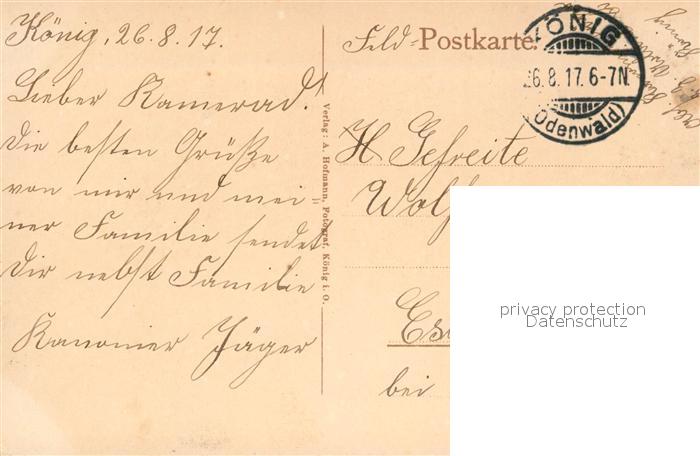 König, 26.8.17.
Lieber Kamerad!
Die besten Grüße
von mir und mei=
ner Familie sendet
Dir nebst Familie
Kanonier Jäger
Verlag: A. Hofmann, Fotograf, König i. O.
Feld=Postkarte.
KÖNIG
26.8.17.6-7N.
(Odenwald)
H Gefreite
Wolf
bei
privacy protection
Datenschutz